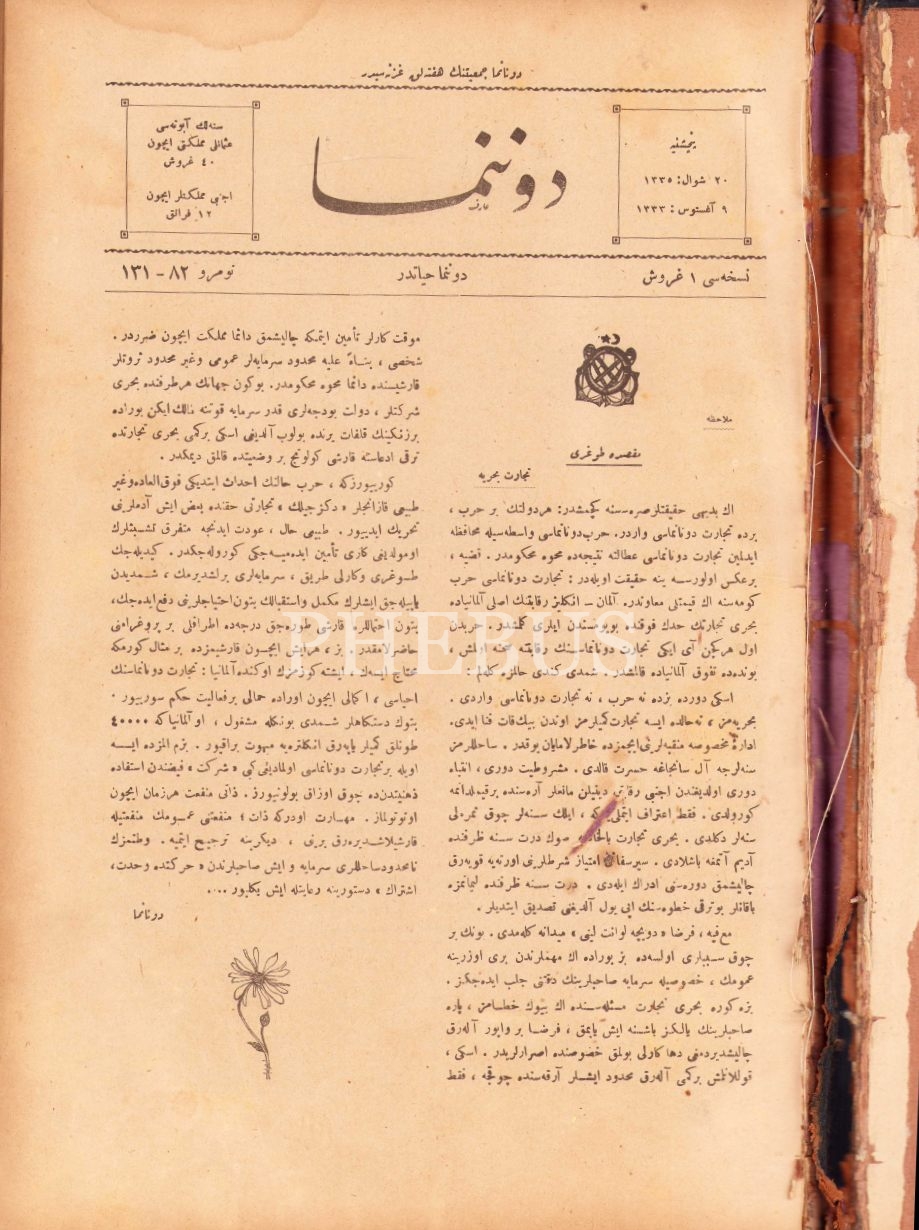 دونانما جمعیتنك هفته‌لق غزته‌سیدر
پنجشنبه
۲۰ شوال: ۱۳۳۵
۹ آغستوس: ۱۳۳۳
دوننما
عارف
سنه‌لك آبونه‌سی
عثمانلی مملکتی ایچون
٤٠ غروش
اجنبی مملکتلر ایچون
۱۲ فرانق
نسخه‌سی ۱ غروش
دوننما حیاتدر
نومرو ۸۲ - ۱۳۱
ملاحظه
مقصده طوغری
تجارت بحریه
اك بدیهی حقیقتلر صره‌سنه کچمشدر: هر دولتك بر حرب،
برده تجارت دونانماسی واردر. حرب دونانماسی واسطه‌سیله محافظه
ایدلمین تجارت دونانماسی عطالته نتیجه‌ده محوه محکومدر. قضیه،
برعکس اولورسه ینه حقیقت اویله‌در: تجارت دونانماسی حرب
کومه‌سنه اك قیمتلی معاوندر. آلمان - انکلیز رقابتنك اصلی آلمانیاده
بحری تجارتك حدك فوقنده بویومسندن ایلری کلمشدر. حربدن
اول هرکین آی ایکی تجارت دونانماسنك رقابته صحنه اولمش،
بونده‌ده تفوق آلمانیاده قالمشدر. شمدی کندی حالمزه کله‌لم:
اسکی دورده بزده نه حرب، نه تجارت دونانماسی واردی.
بحریه‌مز، نه حالده ایسه تجارت کمیلرمز اوندن بیك قات فنا ایدی.
ادارهٔ مخصوصه منقبه‌لرینی ایچمزده خاطرلامایان یوقدر. ساحللرمز
سنه‌لرجه آل سانجاغه حسرت قالدی. مشروطیت دوری، انتباه
دوری اولدیغندن اجنبی رقابتی دینیلن مانعلر آره‌سنده
کورولدی. فقط اعتراف ایتملی که، ایلك سنه‌لر چوق ثمره‌لی
سنه‌لر دکلدی. بحری تجارت صوك درت سنه ظرفنده
آدیم آتمغه باشلادی. سیرسفائن امتیاز شرطلرینی اورته‌یه قویه‌رق
چالیشمق دوره‌سنی ادراك ایله‌دی. درت سنه ظرفنده لیمانمزه
باقانلر بو ترقی خطوه‌سنك ایی یول آلدیغنی تصدیق ایتدیلر.
مع‌فیه، فرضا «دویچه لوانت لینی» میدانه کله‌مدی. بونك بر
چوق سببلری اولسه‌ده بز بوراده اك مهملرندن بری اوزرینه
عمومك، خصوصیله سرمایه صاحبلرینك دقتنی جلب ایده‌جکز.
بزه کوره بحری تجارت مسئله‌سنده اك بیوك خطامز، پاره
صاحبلرینك یالکز باشنه ایش یاپمق، فرضا بر واپور آله‌رق
چالیشدیرمه‌نی دها کارلی بولمق خصوصنده اصرارلریدر. اسکی،
قوللانلمش بر کمی آله‌رق محدود ایشلر آرقه‌سنده چوقجه، فقط
موقت کارلر تأمین ایتمکه چالیشمق دائما مملکت ایچون ضرردر.
شخصی، بناءً علیه محدود سرمایه‌لر عمومی وغیر محدود ثروتلر
قارشیسنده دائما محوه محکومدر. بوکون جهانك هر طرفنده بحری
شرکتلر، دولت بودجه‌لری قدر سرمایه قوتنه مالك ایکن بوراده
بر زنکینك قلفات یرنده بولوب آلدیغی اسکی بر کمی بحری تجارتده
ترقی ادعاسنه قارشی کولونج بر وضعیتده قالمق دیمکدر.
کوریورزکه، حرب حالنك احداث ایتدیکی فوق‌العاده وغیر
طبیعی قازانجلر «دکزجیلك» تجارتی حقنده بعض ایش آدملرینی
تحریك ایدییور. طبیعی حال، عودت ایدنجه متفرق تشبثلرك
اومولدیغی کاری تأمین ایده‌میه‌جکی کوروله‌جکدر. کیدیله‌جك
طوغری وکارلی طریق، سرمایه‌لری برلشدیرمك، شمدیدن
یاپیله‌جق ایشلرك مکمل واستقبالك بتون احتیاجلرینی دفع ایده‌جك،
بتون احتماللره قارشی طوره‌جق درجه‌ده اطرافلی بر پروغرامنی
حاضرلامقدر. بز، هر ایش ایچون قارشیمزده بر مثال کورمکه
محتاج ایسه‌ك، ایشته کوزمزك اوکنده آلمانیا: تجارت دونانماسنك
احیاسی، اکمالی ایچون اوراده حمالی بر فعالیت حکم سورییور.
بتون دستکاهلر شمدی بونکله مشغول، او آلمانیا که ٤٠٠٠٠
طونلق کمیلر یاپه‌رق انکلتره‌یه مبهوت براقیور. بزم المزده ایسه
اویله بر تجارت دونانماسی اولمادیغی کبی «شرکت» فیضندن استفاده
ذهنیتندن‌ده چوق اوزاق بولونیورز. ذاتی منفعت هر زمان ایچون
اونوتولماز. مهارت اودرکه ذات؛ منفعتی عمومك منفعتیله
قارشیلاشدیره‌رق برینی، دیکرینه ترجیح ایتمیه. وطنمزك
نامحدود ساحللری سرمایه و ایش صاحبلرندن «حرکتده وحدت،
اشتراك» دستورینه رعایتله ایش بکلیور....
دونانما